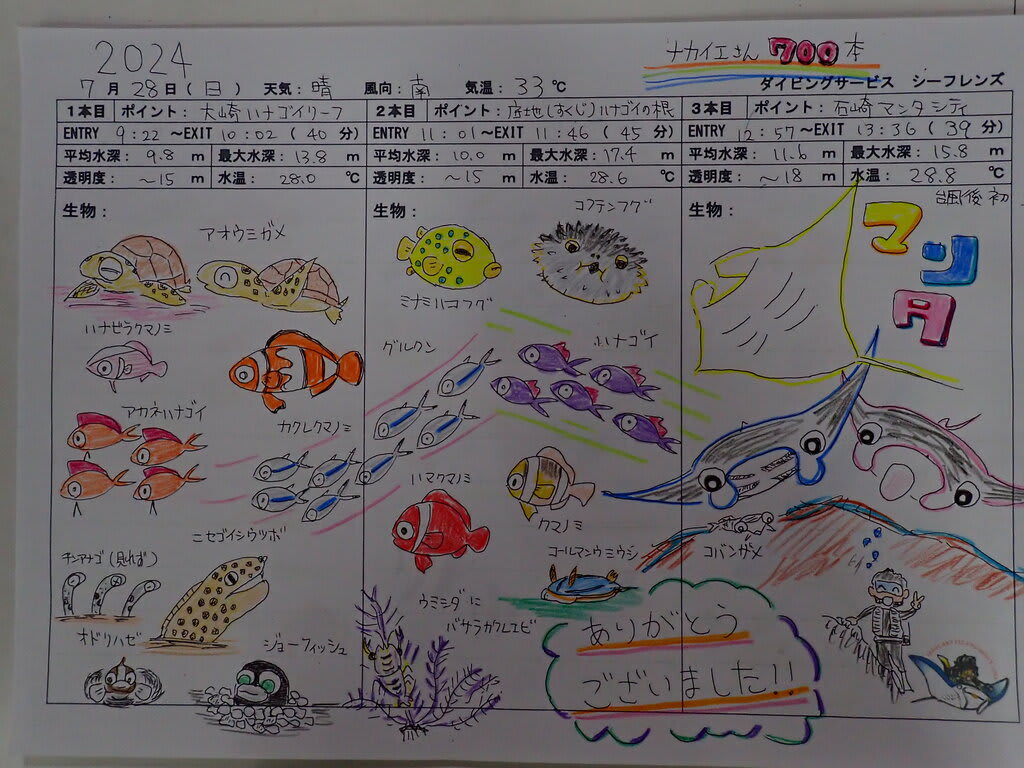 2024
ナカイエさん 700本
7月28日(日) 天気:晴 風向:南 気温:33℃
ダイビングサービス シーフレンズ
1本目 ポイント:大崎ハナゴイリーフ
ENTRY 9:22 ~EXIT 10:02 ( 40 分)
平均水深: 9.8 m 最大水深: 13.8 m
透明度: ~15 m 水温: 28.0 ℃
生物:
アオウミガメ
ハナビラクマノミ
アカネハナゴイ
カクレクマノミ
ニセゴイシウツボ
チンアナゴ(見れず)
オドリハゼ
ジョーフィッシュ
2本目 ポイント:底地(すくじ)ハナゴイの根
ENTRY 11:01 ~EXIT 11:46 ( 45 分)
平均水深: 10.0 m 最大水深: 17.4 m
透明度: ~15 m 水温: 28.6 ℃
生物:
コクテンフグ
ミナミハコフグ
グルクン
ハナゴイ
ハマクマノミ
クマノミ
コールマンウミウシ
ウミシダに
バサラカクレエビ
3本目 ポイント:石崎マンタシティ
ENTRY 12:57 ~EXIT 13:36 ( 39 分)
平均水深: 11.6 m 最大水深: 15.8 m
透明度: ~18 m 水温: 28.8 ℃
生物:
台風後 初
マンタ
コバンザメ
ありがとう
ございました!!